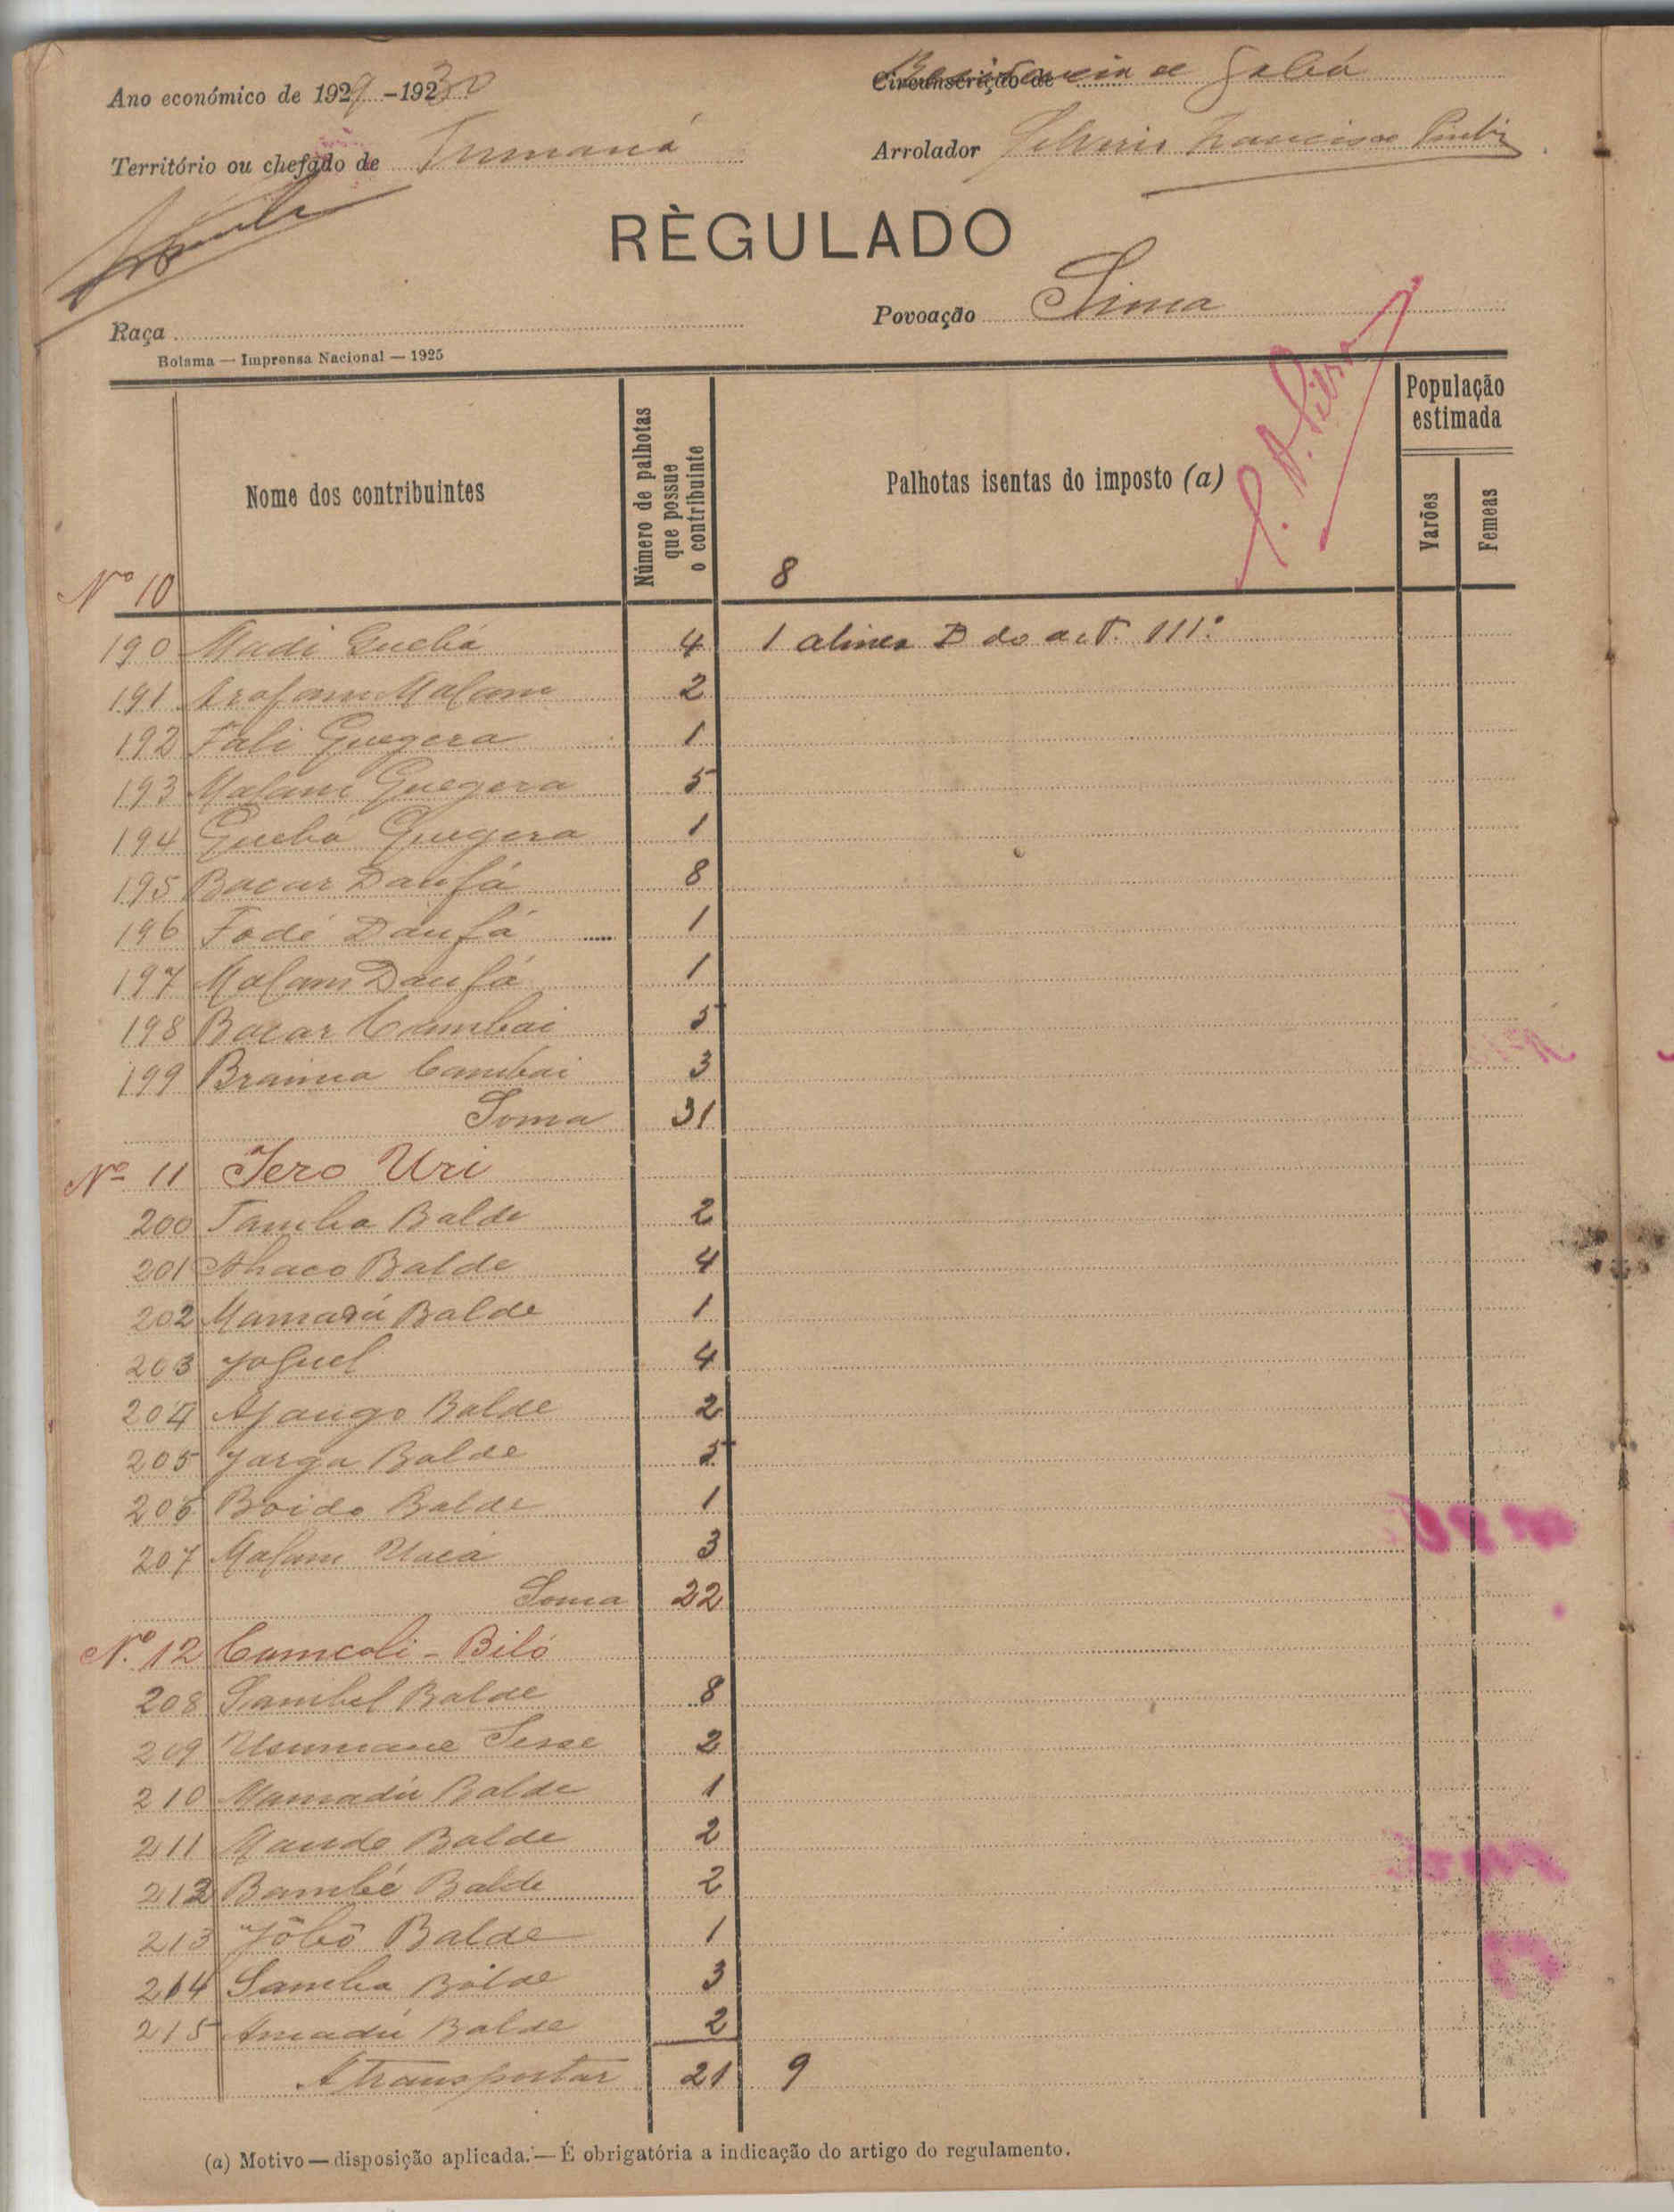 Ano económico de 1929-1930
Circunscrição de Gabú
Território ou chefado de Tumaná
Arrolador Francisco
RÈGULADO
Povoação Sima
Raça
Bolama — Imprensa Nacional — 1925
Nome dos contribuintes
Número de palhotas que possue o contribuinte
Palhotas isentas do imposto (a)
População estimada
Varões
Femeas
Nº 10 8
190 Madi Quebá 4 1 alinea D do art. 111º
191 Arafam Malam 2
192 Fali Guegera 1
193 Malam Guegera 5
194 Quebá Guegera 1
195 Bacar Danfá 8
196 Fodé Danfá 1
197 Malam Danfá 1
198 Bacar Cambai 5
199 Braima Cambai 3
Soma 31
Nº 11 Jero Uri
200 Tamba Balde 2
201 Balde 4
202 Mamadú Balde 1
203 4
204 Balde 2
205 Jarga Balde 5
206 Boido Balde 1
207 Malam 3
Soma 22
Nº 12 Camcoli - Biló
208 Sambel Balde 8
209 Usumane Sesse 2
210 Mamadú Balde 1
211 Balde 2
212 Bambé Balde 2
213 Jôbô Balde 1
214 Samba Balde 3
215 Amadú Balde 2
A transportar 21 9
(a) Motivo — disposição aplicada. — É obrigatória a indicação do artigo do regulamento.